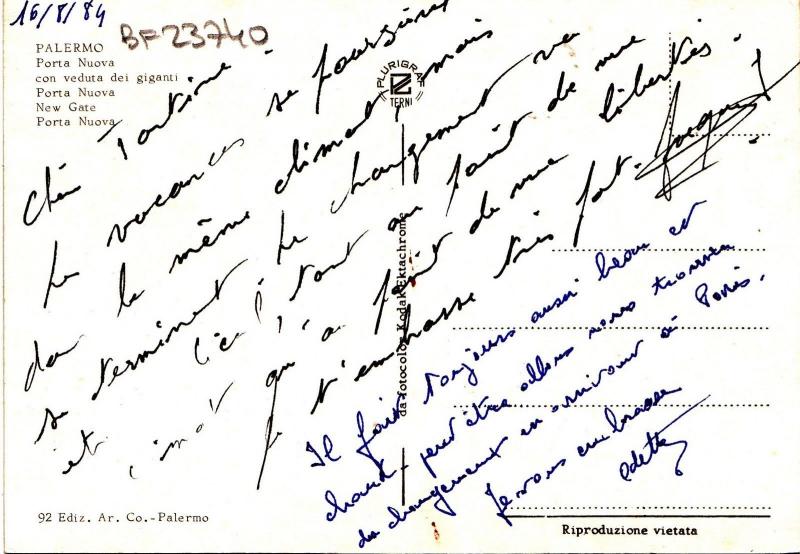 16/8/84
BF23740
PALERMO
Porta Nuova
con veduta dei giganti
Porta Nuova
New Gate
Porta Nuova
PLURIGRAF
TERNI
da fotocolor Kodak Ektachrome
Chère Tontine.
Les vacances se
dans le même climat, mais
se terminent. Le changement va
et tout au point de vue
qu'a point de vue libertés.
Je t'embrasse très fort.
Il fait toujours aussi beau et
chaud - peut être allons nous trouver
du changement en arrivant à Paris.
Je vous embrasse
Odette
92 Ediz. Ar. Co.-Palermo
Riproduzione vietata